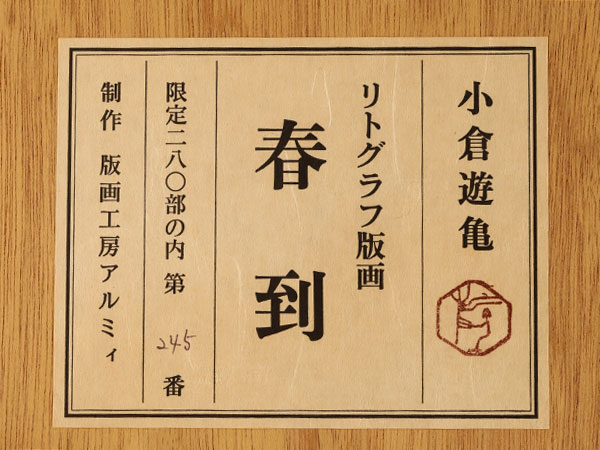 小倉遊亀
リトグラフ版画
春到
限定二八〇部の内 第 245 番
制作 版画工房アルミィ